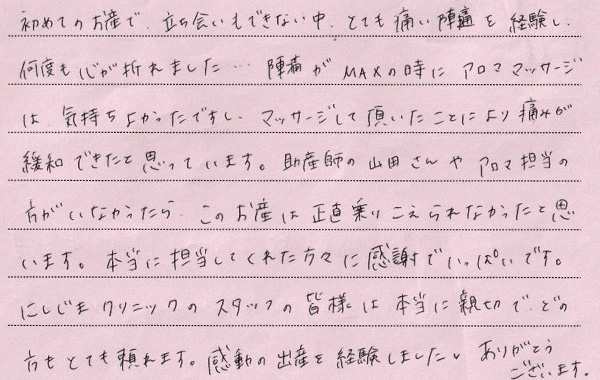 初めてのお産で、立ち会いもできない中、とても痛い陣痛を経験し、
何度も心が折れました… 陣痛がMAXの時にアロママッサージ
は、気持ちよかったですし、マッサージして頂いたことにより痛みが
緩和できたと思っています。助産師の山田さんやアロマ担当の
方がいなかったら、このお産は正直乗りこえられなかったと思
います。本当に担当してくれた方々に感謝でいっぱいです。
にしじまクリニックのスタッフの皆様は本当に親切で、どの
方もとても頼れます。感動の出産を経験しました。ありがとう
ございます。